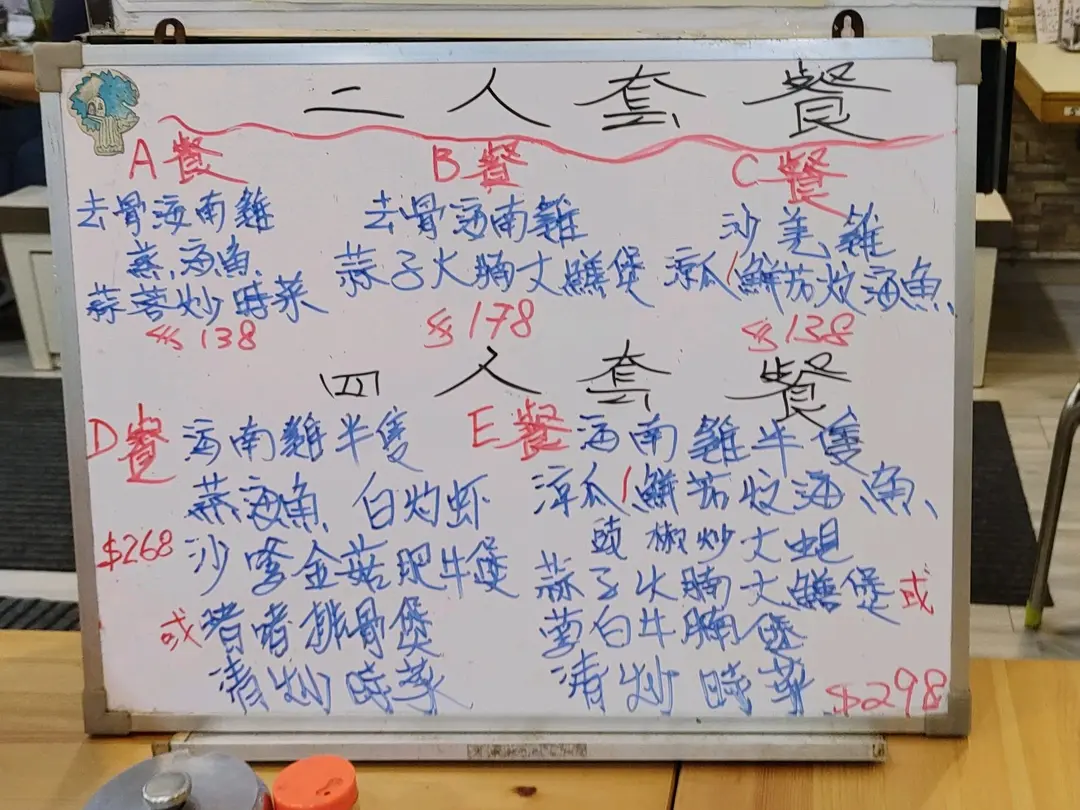 二人套餐
A餐
去骨海南雞
蒸海魚
蒜蓉炒時菜
$138
B餐
去骨海南雞
蒜子火腩大鱔煲
$178
C餐
沙羌雞
涼瓜/鮮茄炆海魚
$138
四人套餐
D餐
海南雞半隻
蒸海魚 白灼虾
沙嗲金菇肥牛煲
或啫啫排骨煲
清炒時菜
$268
E餐
海南雞半隻
涼瓜/鮮茄炆海魚
豉椒炒大蜆
蒜子火腩大鱔煲或
蘿白牛腩煲
清炒時菜
$298